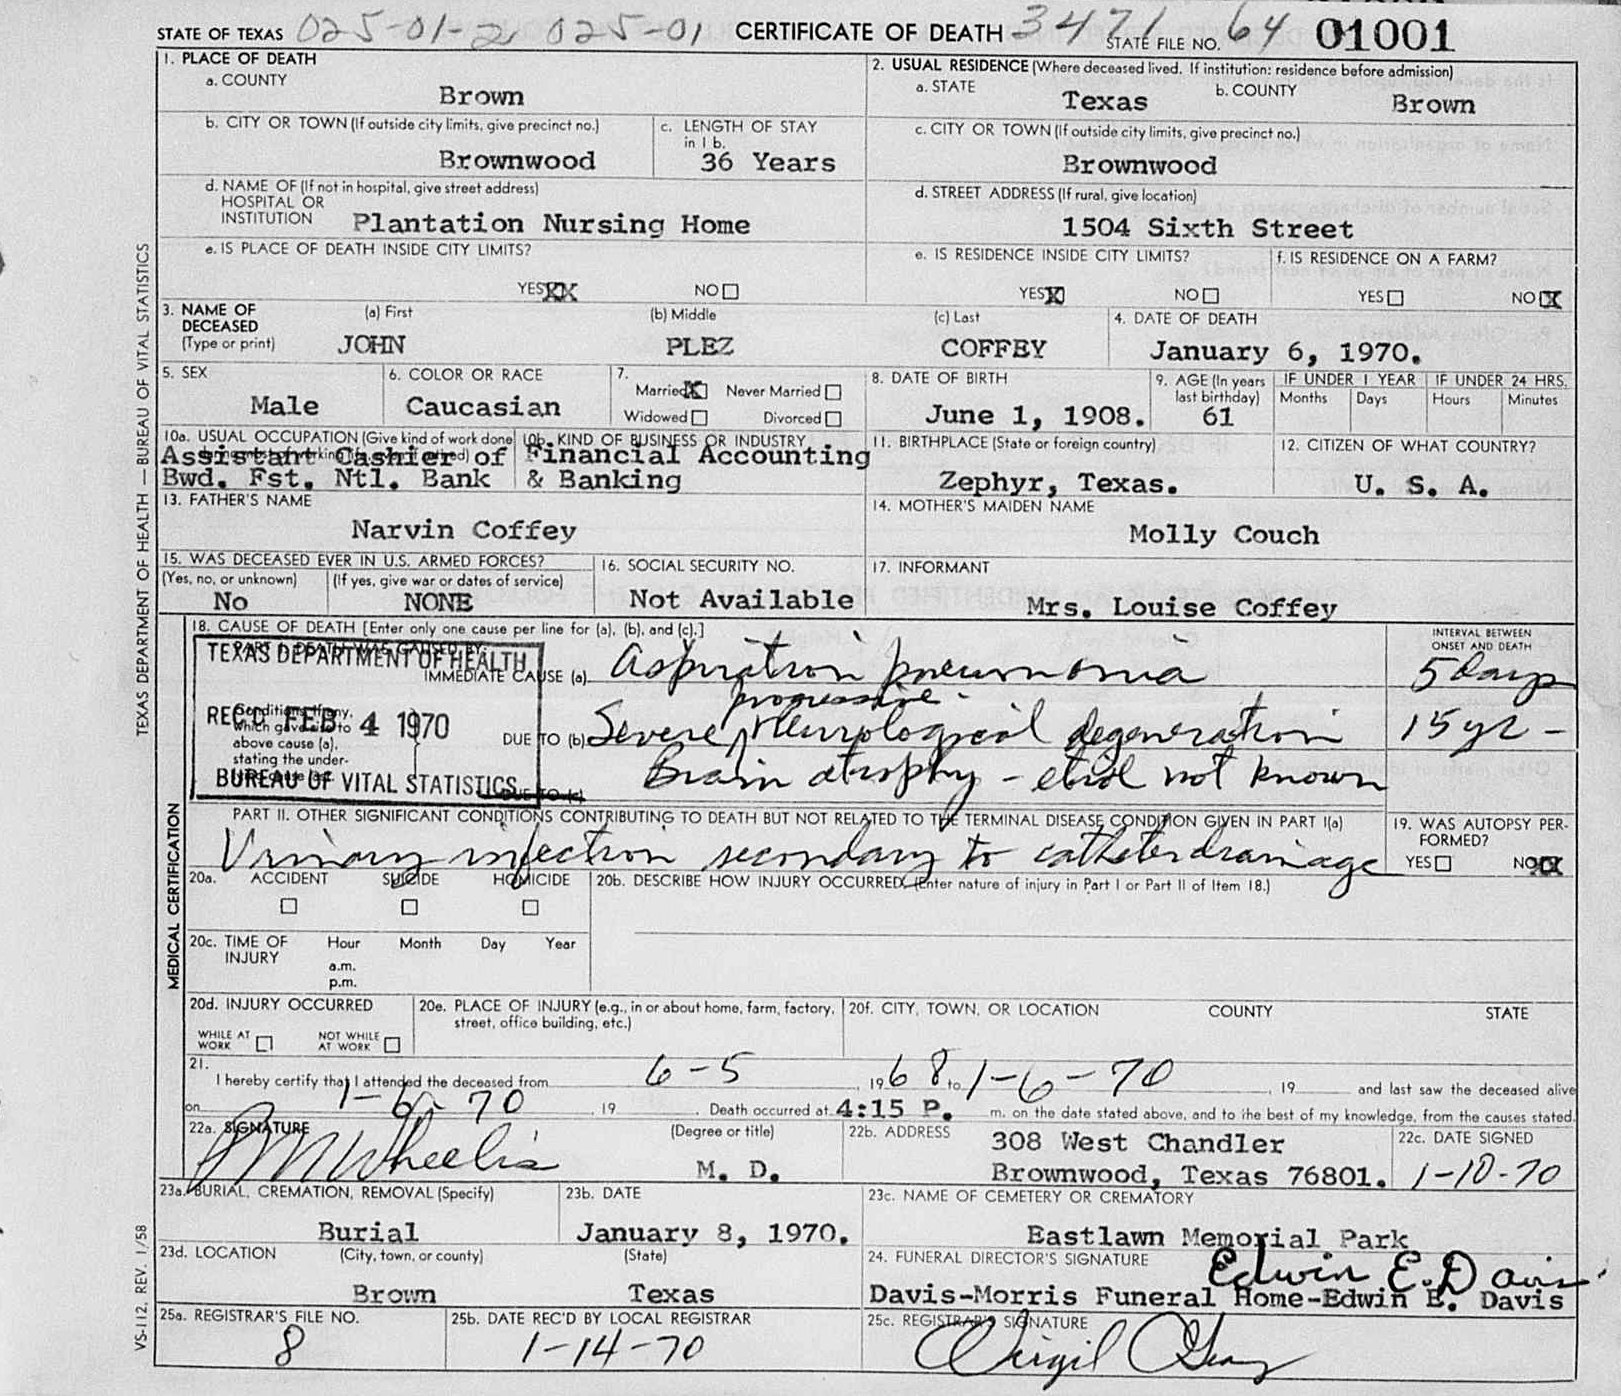 STATE OF TEXAS 025-01-2 025-01 CERTIFICATE OF DEATH 3471 STATE FILE NO. 64 01001
1. PLACE OF DEATH
a. COUNTY
Brown
2. USUAL RESIDENCE (Where deceased lived. If institution: residence before admission)
a. STATE Texas b. COUNTY Brown
b. CITY OR TOWN (If outside city limits, give precinct no.)
Brownwood
c. LENGTH OF STAY
in 1 b.
36 Years
c. CITY OR TOWN (If outside city limits, give precinct no.)
Brownwood
d. NAME OF (If not in hospital, give street address)
HOSPITAL OR
INSTITUTION Plantation Nursing Home
d. STREET ADDRESS (If rural, give location)
1504 Sixth Street
e. IS PLACE OF DEATH INSIDE CITY LIMITS?
YES XX NO
e. IS RESIDENCE INSIDE CITY LIMITS?
YES X NO
f. IS RESIDENCE ON A FARM?
YES NO X
3. NAME OF
DECEASED
(Type or print)
(a) First
JOHN
(b) Middle
PLEZ
(c) Last
COFFEY
4. DATE OF DEATH
January 6, 1970.
5. SEX
Male
6. COLOR OR RACE
Caucasian
7.
Married X Never Married
Widowed Divorced
8. DATE OF BIRTH
June 1, 1908.
9. AGE (In years
last birthday)
61
IF UNDER 1 YEAR
Months Days
IF UNDER 24 HRS.
Hours Minutes
10a. USUAL OCCUPATION (Give kind of work done
Assistant Cashier of
Bwd. Fst. Ntl. Bank
10b. KIND OF BUSINESS OR INDUSTRY
Financial Accounting
& Banking
11. BIRTHPLACE (State or foreign country)
Zephyr, Texas.
12. CITIZEN OF WHAT COUNTRY?
U. S. A.
13. FATHER'S NAME
Narvin Coffey
14. MOTHER'S MAIDEN NAME
Molly Couch
15. WAS DECEASED EVER IN U.S. ARMED FORCES?
(Yes, no, or unknown) (If yes, give war or dates of service)
No NONE
16. SOCIAL SECURITY NO.
Not Available
17. INFORMANT
Mrs. Louise Coffey
18. CAUSE OF DEATH [Enter only one cause per line for (a), (b), and (c).]
PART I. DEATH WAS CAUSED BY:
TEXAS DEPARTMENT OF HEALTH
REC'D FEB 4 1970
BUREAU OF VITAL STATISTICS
Conditions, if any,
which gave rise to
above cause (a),
stating the under-
IMMEDIATE CAUSE (a) Aspiration pneumonia
progressive
DUE TO (b) Severe Neurological degeneration
DUE TO (c) Brain atrophy - etiol not known
INTERVAL BETWEEN
ONSET AND DEATH
5 days
15 yr -
PART II. OTHER SIGNIFICANT CONDITIONS CONTRIBUTING TO DEATH BUT NOT RELATED TO THE TERMINAL DISEASE CONDITION GIVEN IN PART I(a)
Urinary infection secondary to catheter drainage
19. WAS AUTOPSY PER-
FORMED?
YES NO X
20a. ACCIDENT SUICIDE HOMICIDE
20b. DESCRIBE HOW INJURY OCCURRED. (Enter nature of injury in Part I or Part II of Item 18.)
20c. TIME OF
INJURY
Hour Month Day Year
a.m.
p.m.
20d. INJURY OCCURRED
WHILE AT
WORK
NOT WHILE
AT WORK
20e. PLACE OF INJURY (e.g., in or about home, farm, factory,
street, office building, etc.)
20f. CITY, TOWN, OR LOCATION COUNTY STATE
21.
I hereby certify that I attended the deceased from 6-5, 1968 to 1-6-70, 19 and last saw the deceased alive
on 1-6-70, 19. Death occurred at 4:15 P. m. on the date stated above, and to the best of my knowledge, from the causes stated.
22a. SIGNATURE (Degree or title)
Wheelis M. D.
22b. ADDRESS
308 West Chandler
Brownwood, Texas 76801.
22c. DATE SIGNED
1-10-70
23a. BURIAL, CREMATION, REMOVAL (Specify)
Burial
23b. DATE
January 8, 1970.
23c. NAME OF CEMETERY OR CREMATORY
Eastlawn Memorial Park
23d. LOCATION (City, town, or county) (State)
Brown Texas
24. FUNERAL DIRECTOR'S SIGNATURE
Edwin E. Davis
Davis-Morris Funeral Home-Edwin E. Davis
25a. REGISTRAR'S FILE NO.
8
25b. DATE REC'D BY LOCAL REGISTRAR
1-14-70
25c. REGISTRAR'S SIGNATURE
Virgil Gray
TEXAS DEPARTMENT OF HEALTH — BUREAU OF VITAL STATISTICS
MEDICAL CERTIFICATION
VS-112, REV. 1/58